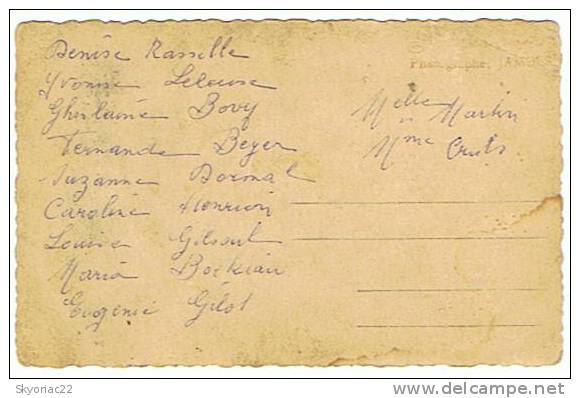 Denise Rasselle
Yvonne Leleuse
Ghislaine Bovy
Fernande Beyer
Suzanne Dormal
Caroline Henrion
Louise Gilsoul
Maria
Eugénie Gilot
Photographe, JAMBES
Melle Martin
Mme Cruls
Skyoriac22
delcampe.net